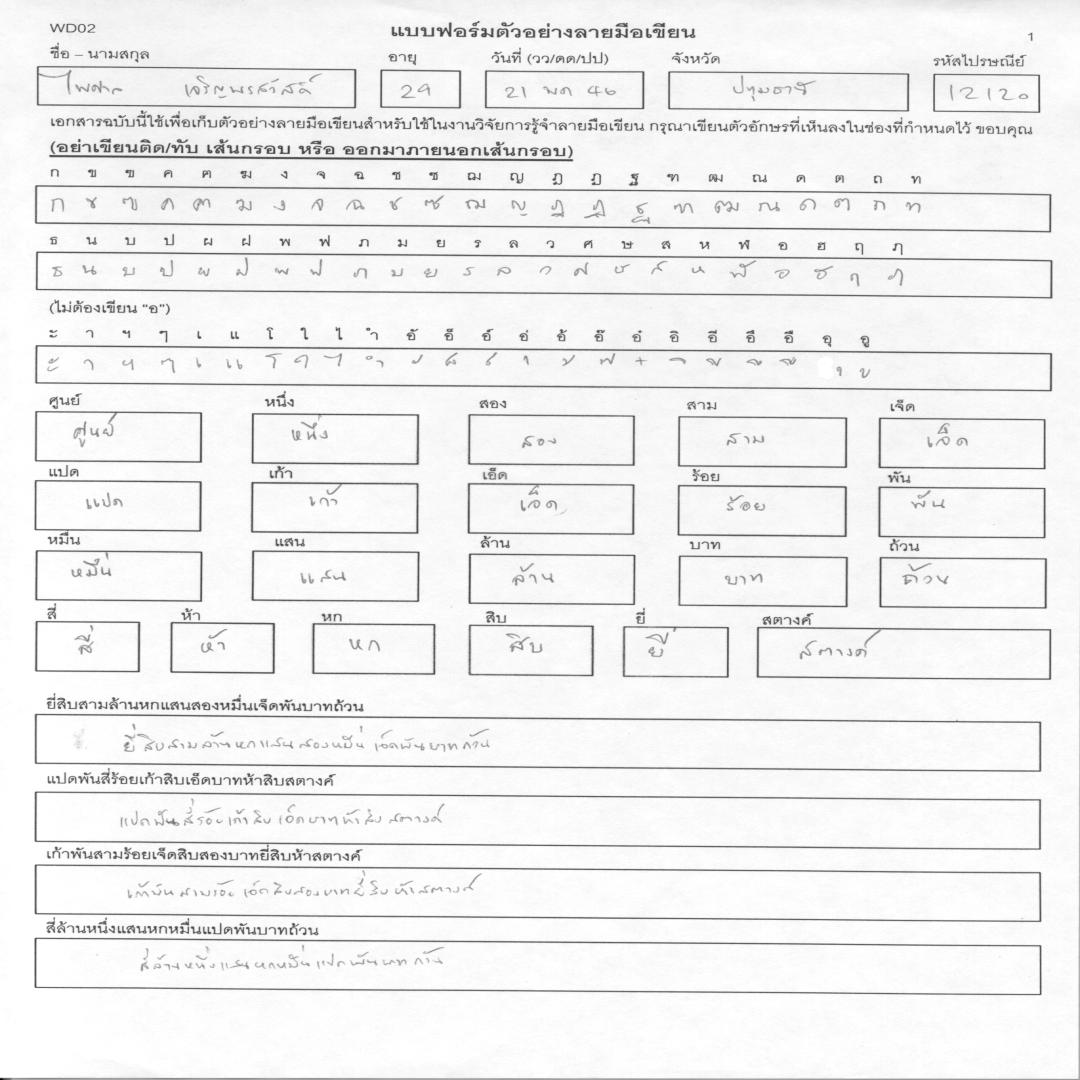 WD02
แบบฟอร์มตัวอย่างลายมือเขียน
1
ชื่อ – นามสกุล อายุ วันที่ (วว/ดด/ปป) จังหวัด รหัสไปรษณีย์
ไพศาล เจริญพรสวัสดิ์ 29 21 พค 46 ปทุมธานี 12120
เอกสารฉบับนี้ใช้เพื่อเก็บตัวอย่างลายมือเขียนสำหรับใช้ในงานวิจัยการรู้จำลายมือเขียน กรุณาเขียนตัวอักษรที่เห็นลงในช่องที่กำหนดไว้ ขอบคุณ
(อย่าเขียนติด/ทับ เส้นกรอบ หรือ ออกมาภายนอกเส้นกรอบ)
ก ข ฃ ค ฅ ฆ ง จ ฉ ช ซ ฌ ญ ฎ ฏ ฐ ฑ ฒ ณ ด ต ถ ท
ก ข ฃ ค ฅ ฆ ง จ ฉ ช ซ ฌ ญ ฎ ฏ ฐ ฑ ฒ ณ ด ต ถ ท
ธ น บ ป ผ ฝ พ ฟ ภ ม ย ร ล ว ศ ษ ส ห ฬ อ ฮ ฤ ฦ
ธ น บ ป ผ ฝ พ ฟ ภ ม ย ร ล ว ศ ษ ส ห ฬ อ ฮ ฤ ฦ
(ไม่ต้องเขียน “อ”)
ะ า ฯ ๆ เ แ โ ใ ไ ำ อั อ็ อ์ อ่ อ้ อ๊ อ๋ อิ อี อึ อื อุ อู
ะ า ฯ ๆ เ แ โ ใ ไ ำ ั ็ ์ ่ ้ ๊ ๋ ิ ี ึ ื ุ ู
ศูนย์ หนึ่ง สอง สาม เจ็ด
ศูนย์ หนึ่ง สอง สาม เจ็ด
แปด เก้า เอ็ด ร้อย พัน
แปด เก้า เอ็ด ร้อย พัน
หมื่น แสน ล้าน บาท ถ้วน
หมื่น แสน ล้าน บาท ถ้วน
สี่ ห้า หก สิบ ยี่ สตางค์
สี่ ห้า หก สิบ ยี่ สตางค์
ยี่สิบสามล้านหกแสนสองหมื่นเจ็ดพันบาทถ้วน
ยี่สิบสามล้านหกแสนสองหมื่นเจ็ดพันบาทถ้วน
แปดพันสี่ร้อยเก้าสิบเอ็ดบาทห้าสิบสตางค์
แปดพันสี่ร้อยเก้าสิบเอ็ดบาทห้าสิบสตางค์
เก้าพันสามร้อยเจ็ดสิบสองบาทยี่สิบห้าสตางค์
เก้าพันสามร้อยเจ็ดสิบสองบาทยี่สิบห้าสตางค์
สี่ล้านหนึ่งแสนหกหมื่นแปดพันบาทถ้วน
สี่ล้านหนึ่งแสนหกหมื่นแปดพันบาทถ้วน